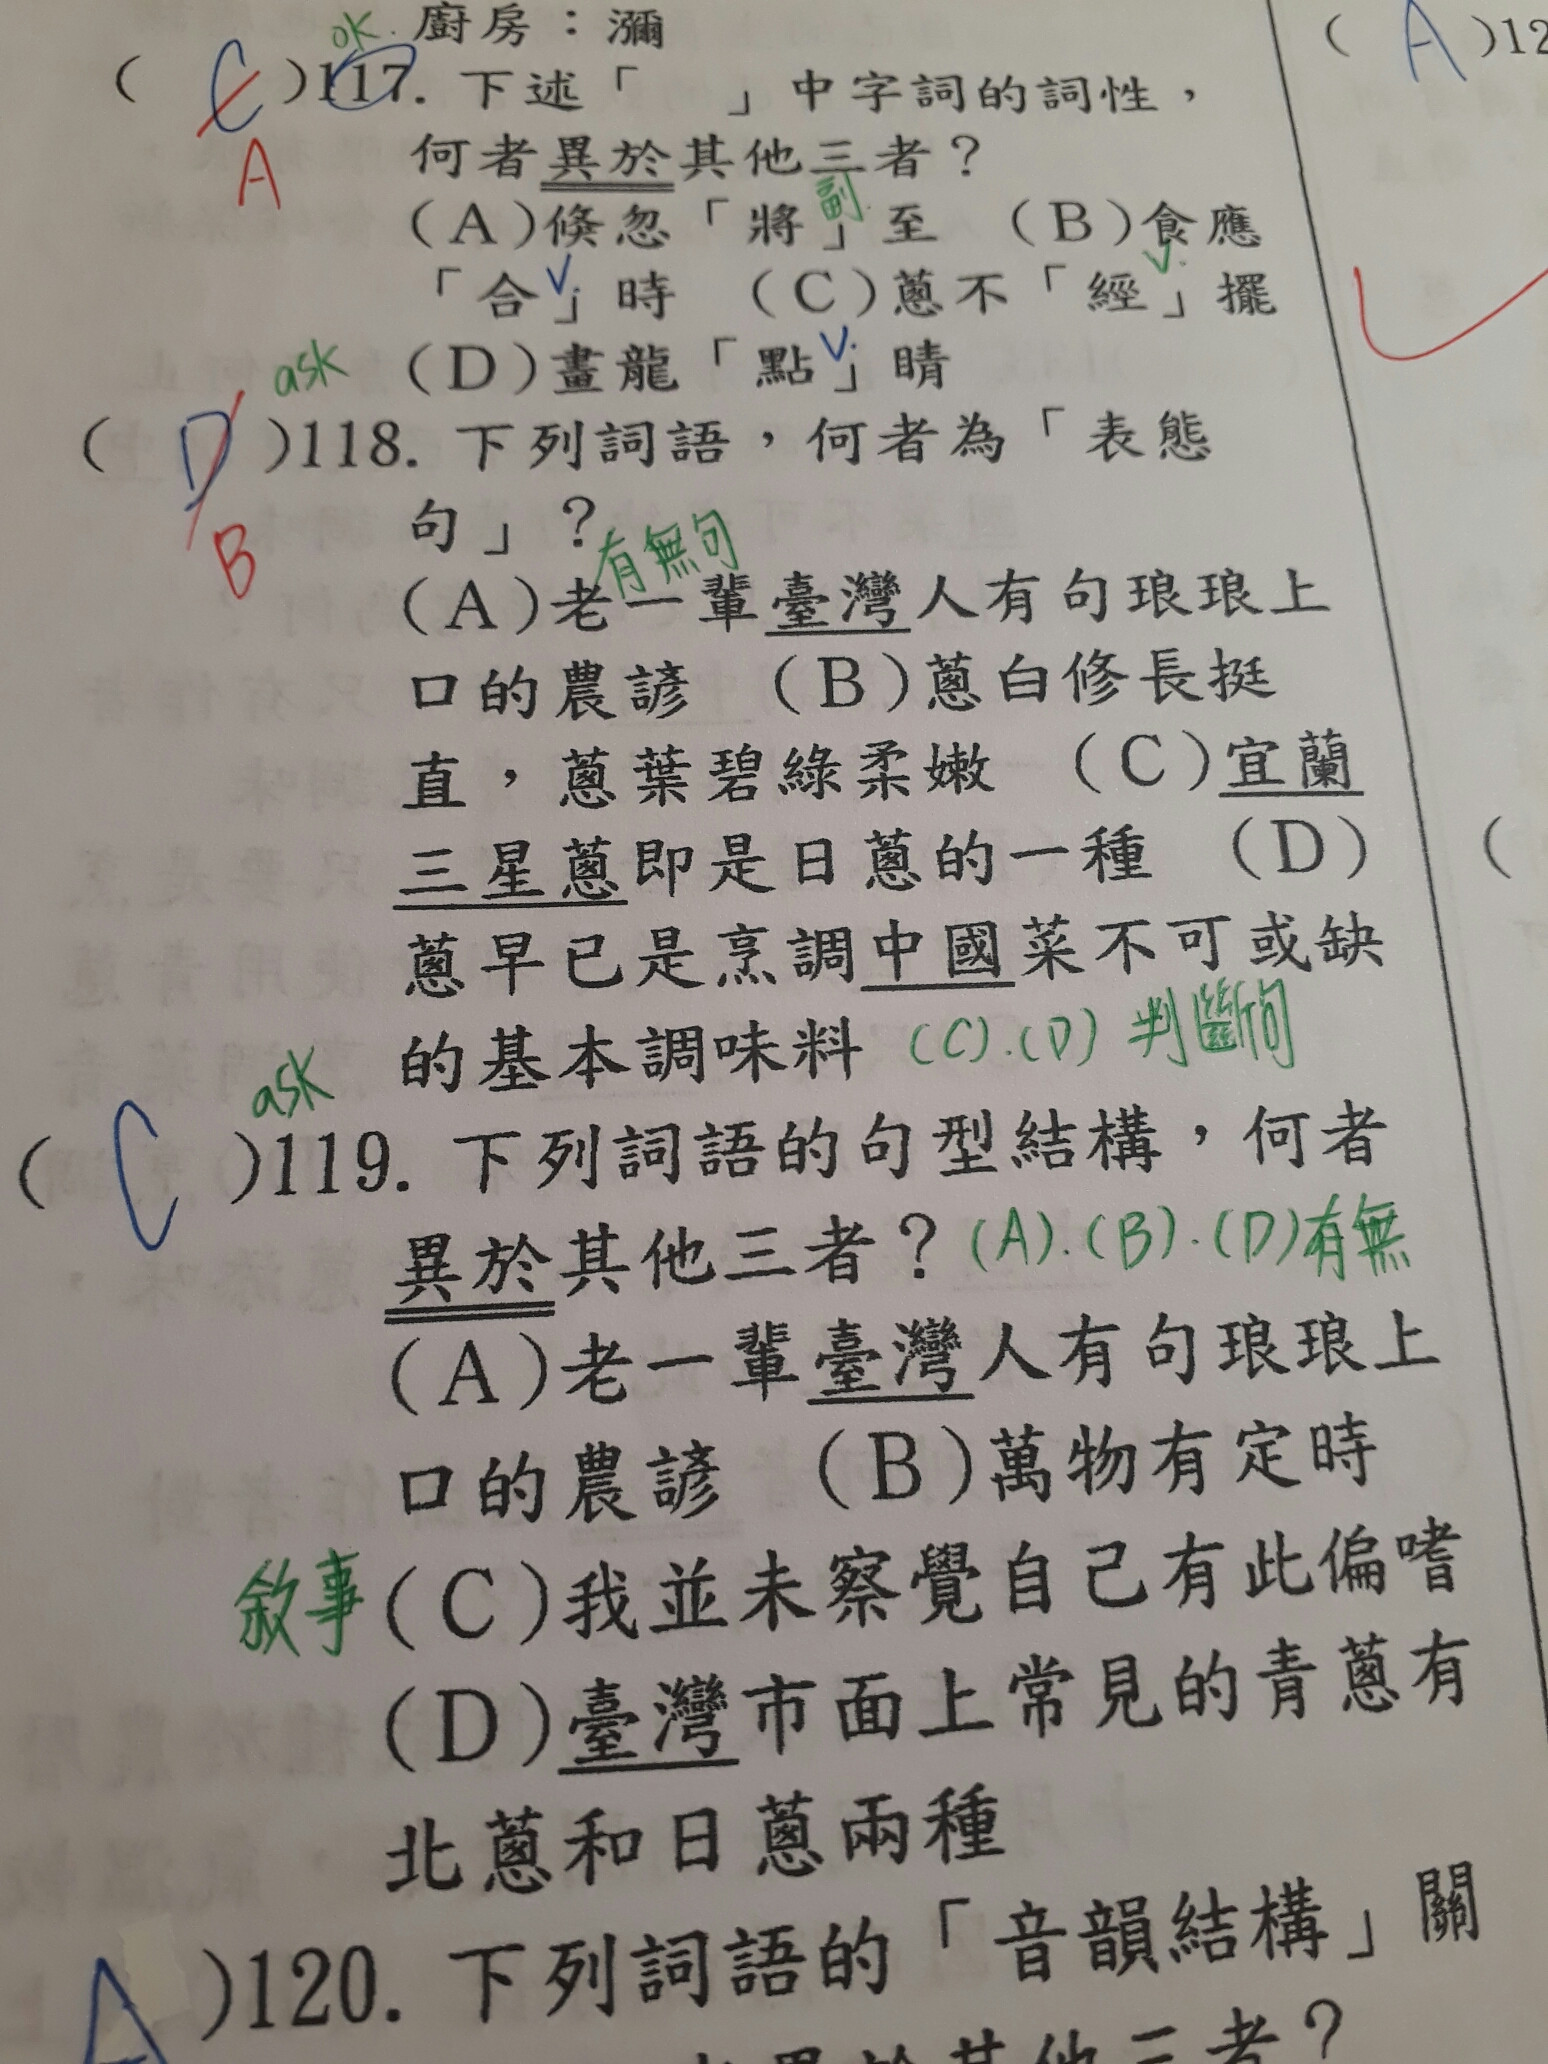 ok. 廚房：瀰
( C )117. 下述「　」中字詞的詞性，
A 何者異於其他三者？
副
(A)倏忽「將」至 (B)食應
V. V.
「合」時 (C)蔥不「經」擺
ask V.
(D)畫龍「點」睛
( D )118. 下列詞語，何者為「表態
B 句」？
有無句
(A)老一輩臺灣人有句琅琅上
口的農諺 (B)蔥白修長挺
直，蔥葉碧綠柔嫩 (C)宜蘭
三星蔥即是日蔥的一種 (D)
蔥早已是烹調中國菜不可或缺
的基本調味料 (C).(D) 判斷句
ask
( C )119. 下列詞語的句型結構，何者
異於其他三者？(A).(B).(D)有無
(A)老一輩臺灣人有句琅琅上
口的農諺 (B)萬物有定時
敘事 (C)我並未察覺自己有此偏嗜
(D)臺灣市面上常見的青蔥有
北蔥和日蔥兩種
A )120. 下列詞語的「音韻結構」關
異於其他三者？
( A )12
(